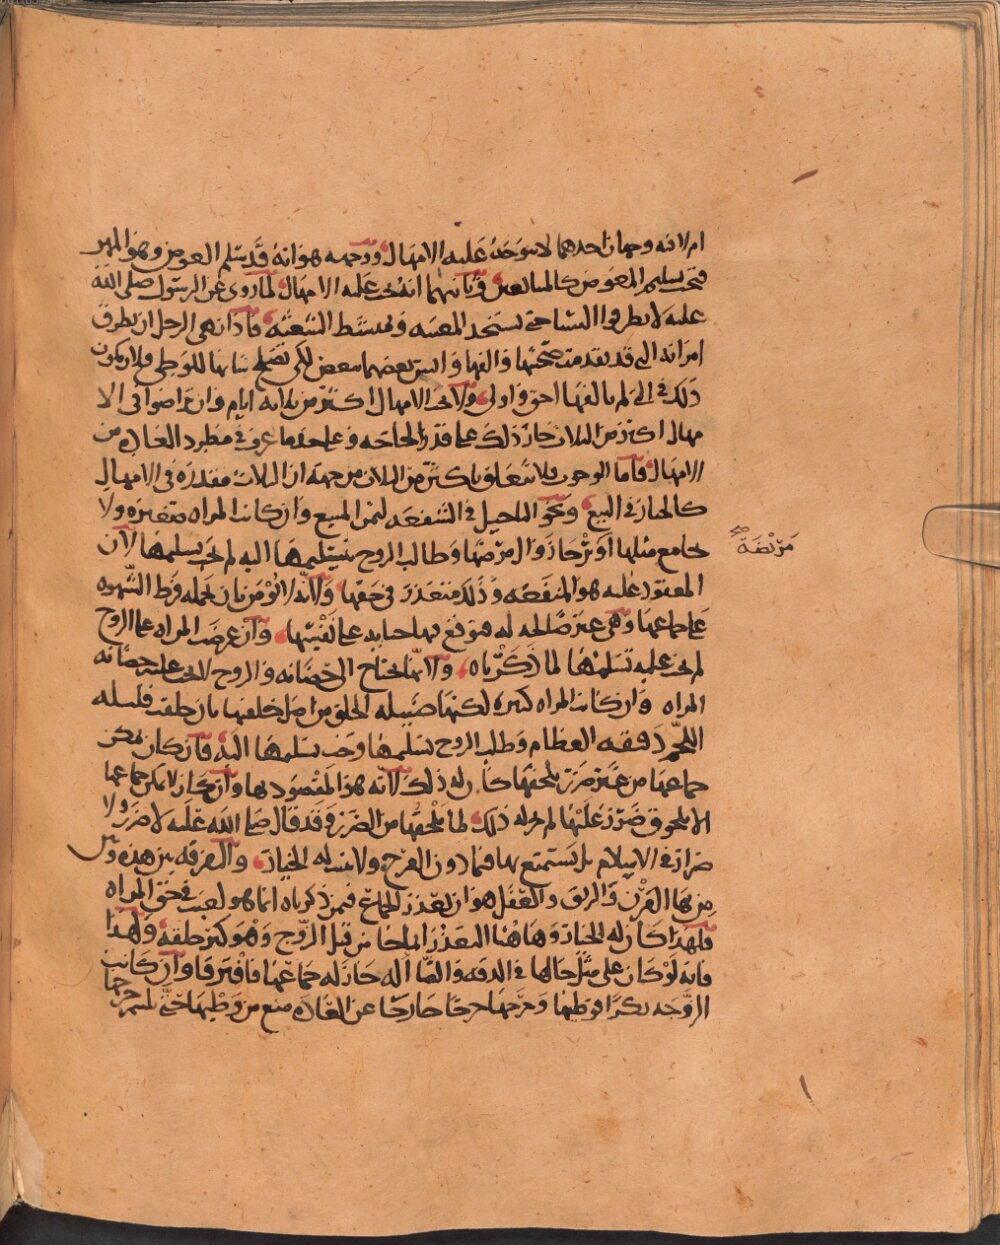 ام لا فيه وجهان احدهما لا يتوجه عليه الامهال ووجهه هو انه قد سلم العوض وهو المهر
فيجب تسليم المعوض كالمبايعين وثانيهما انه يجب عليه الامهال لما روي عن الرسول صلى الله
عليه لا تطرقوا النسا حتى تستحد المغيبه وتمتشط الشعثه فاذا نهى الرجل ان يطرق
امراته التي قد تقدمت صحبتها والفها وانس بعضهما ببعض لكي تصلح شانها للوطي فلان يكون
ذلك في التي لم يالفها احق واولى ولا يجب الامهال اكثر من ثلاثة ايام وان تراضوا في الا
مهال اكثر من الثلاث جاز ذلك على قدر الحاجه وعلى حد ما عرف في مطرد العاده من
الامهال فاما الوجوب فلا يتعلق باكثر من الثلاث من جهة ان الثلاث مقدرة في الامهال
كالخيار في البيع ونحو التاجيل في الشفعه لثمن المبيع وان كانت المراه صغيره ولا
يجامع مثلها او يرجا زوال مرضها وطالب الزوج بتسليمها اليه لم يجب تسليمها لان
مريضة صح
المعقود عليه هو المنفعه وذلك متعذر في حقها ولانه لا يؤمن بان يحمله فرط الشهوه
على جماعها وهي غير صالحه له فتوقع بها جنايه على نفسها وان عرضت المراه على الزوج
لم يجب عليه تسلمها لما ذكرناه ولانها تحتاج الى حضانه والزوج لا يجب عليه حضانه
المراه وان كانت المراه كبيره لكنها ضئيله الخلق من اصل خلقتها بان خلقت قليله
اللحم دقيقه العظام وطلب الزوج تسليمها وجب تسليمها اليه فان كان يمكن
جماعها من غير ضرر يلحقها كان له ذلك لانه هو المقصود بها وان كان لا يمكن جماعها
الا بلحوق ضرر عليها لم يجز له ذلك لما يلحقها من الضرر وقد قال صلى الله عليه لا ضرر ولا
ضرار في الاسلام بل يستمتع بها فيما دون الفرج ولا يثبت له الخيار والتفرقه بين هذه وبين
من بها القرن والرتق والعفل هو ان تعذر الجماع فيمن ذكرناه انما هو لعيب في حق المراه
فلهذا كان له الخيار وهاهنا التعذر انما جا من قبل الزوج وهو كبر خلقه ولهذا
فانه لو كان على مثل حالها في الدقه والضااله جاز له جماعها فافترقا وان كانت
الزوجه بكرا فوطيها وجرحها جرحا خارجا عن العاده منع من وطيها حتى يلتحم جرحها